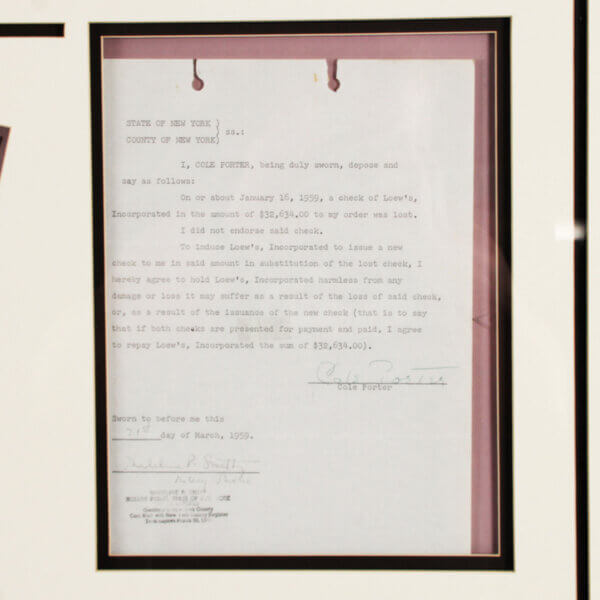 STATE OF NEW YORK )
) ss.:
COUNTY OF NEW YORK)
I, COLE PORTER, being duly sworn, depose and
say as follows:
On or about January 16, 1959, a check of Loew's,
Incorporated in the amount of $32,634.00 to my order was lost.
I did not endorse said check.
To induce Loew's, Incorporated to issue a new
check to me in said amount in substitution of the lost check, I
hereby agree to hold Loew's, Incorporated harmless from any
damage or loss it may suffer as a result of the loss of said check,
or, as a result of the issuance of the new check (that is to say
that if both checks are presented for payment and paid, I agree
to repay Loew's, Incorporated the sum of $32,634.00).
Cole Porter
Cole Porter
Sworn to before me this
21st day of March, 1959.
Notary Public
NOTARY PUBLIC, STATE OF NEW YORK